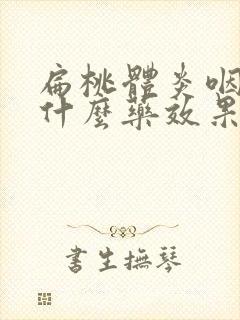 扁桃體炎咽
什麼藥效果
書生撫琴